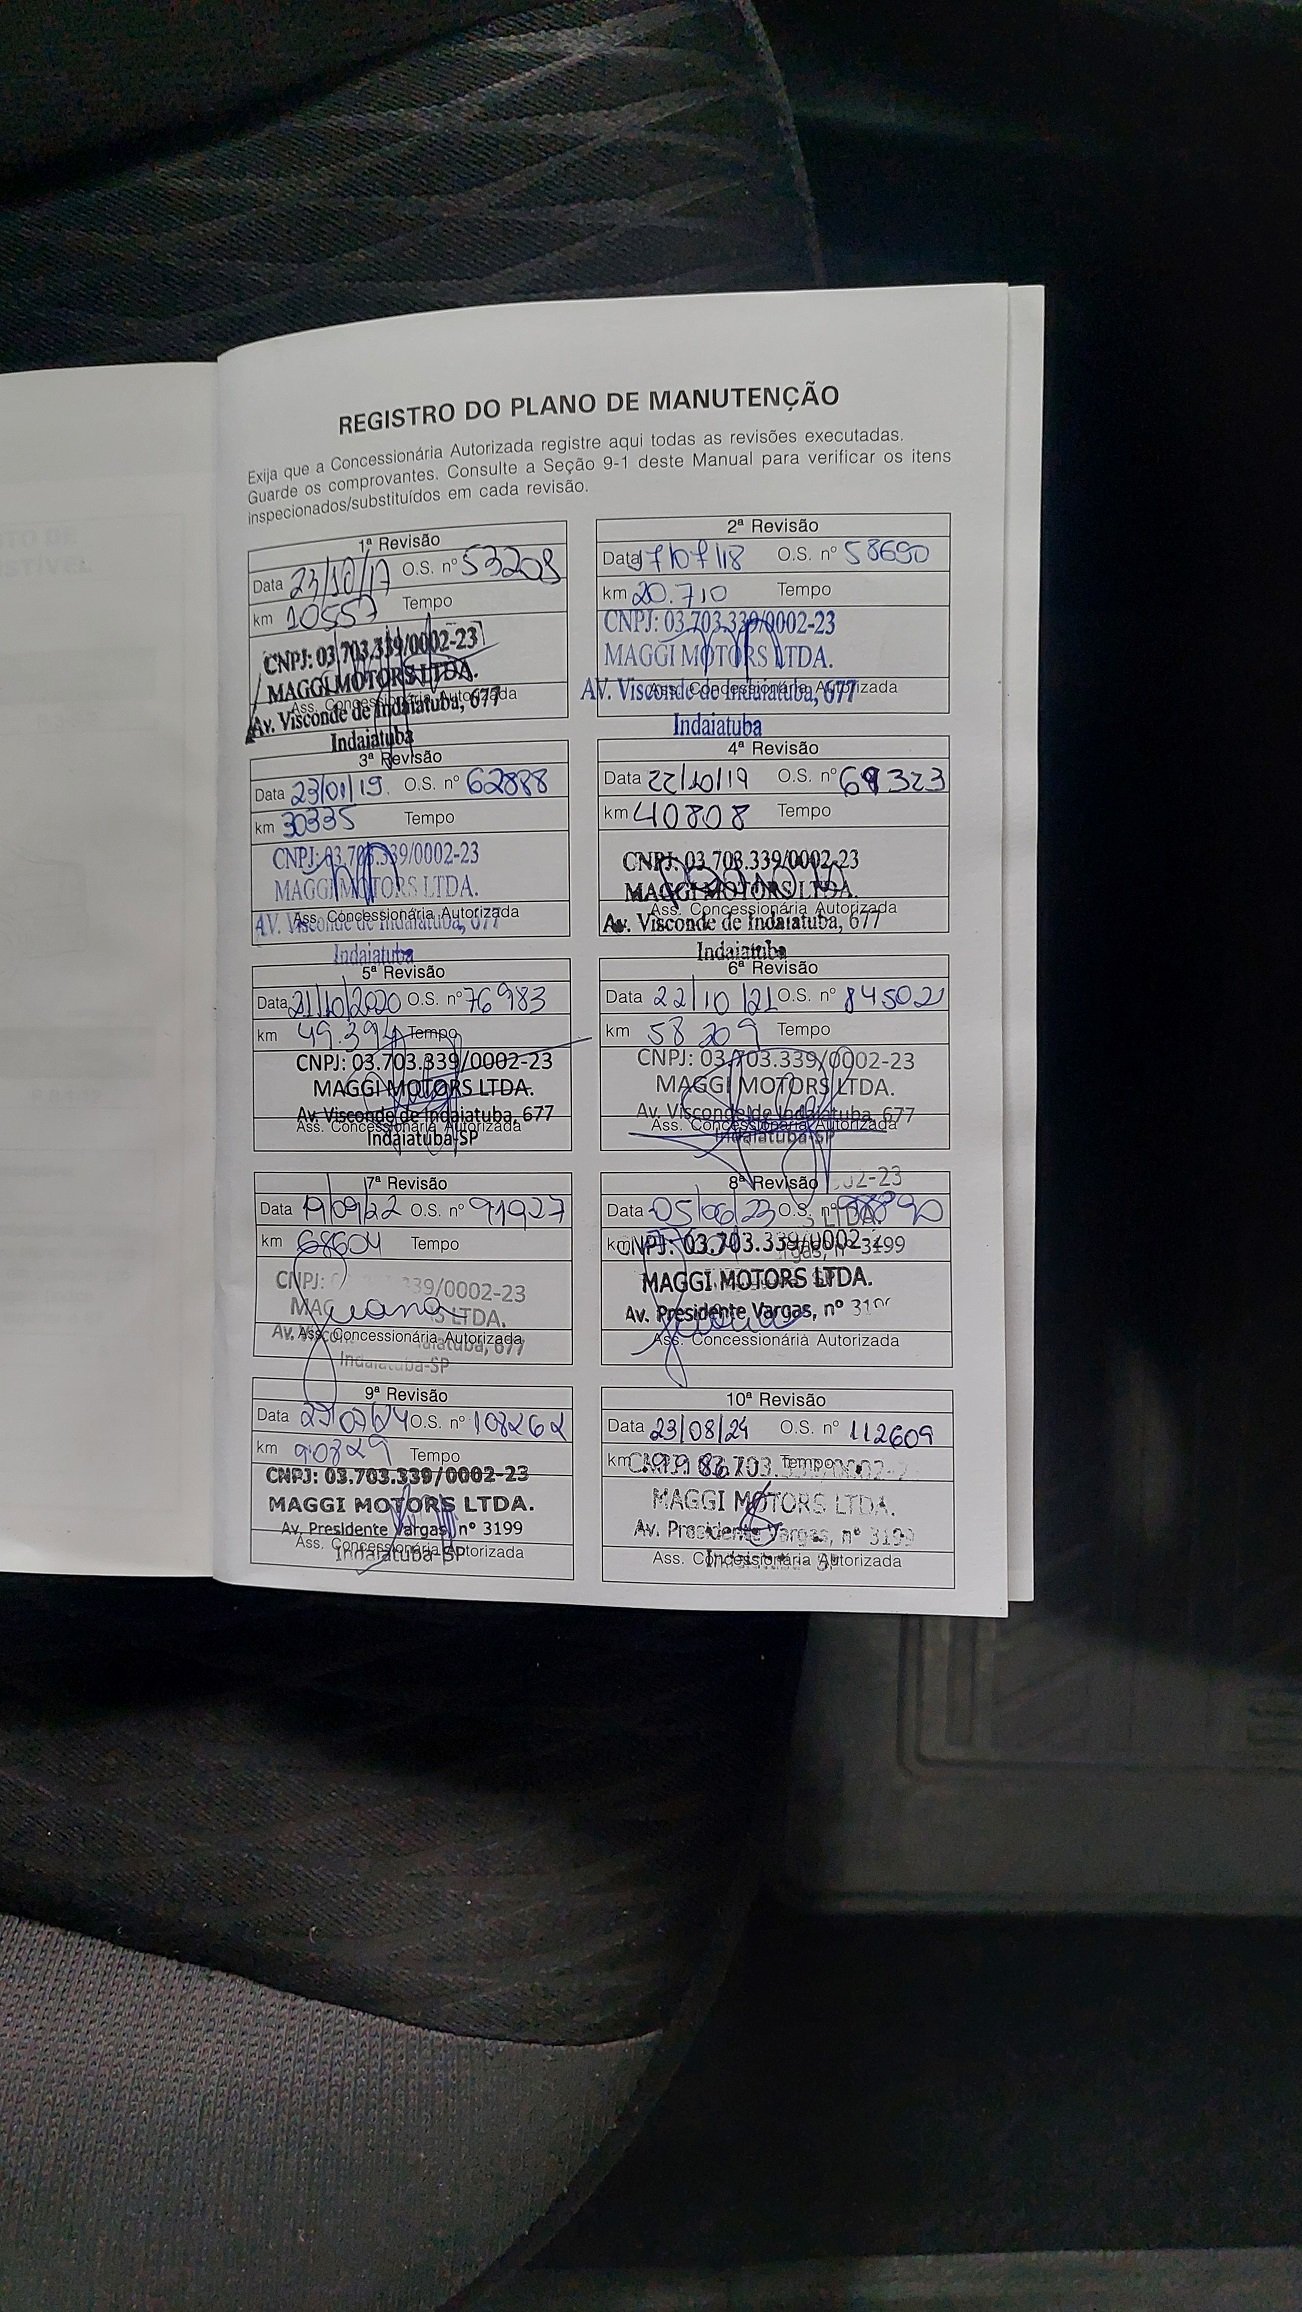 REGISTRO DO PLANO DE MANUTENÇÃO
Exija que a Concessionária Autorizada registre aqui todas as revisões executadas.
Guarde os comprovantes. Consulte a Seção 9-1 deste Manual para verificar os itens
inspecionados/substituídos em cada revisão.
1ª Revisão
Data 23/10/17 O.S. nº 53208
km 10557 Tempo
CNPJ: 03.703.339/0002-23
MAGGI MOTORS LTDA.
Ass. Concessionária Autorizada
Av. Visconde de Indaiatuba, 677
Indaiatuba
2ª Revisão
Data 17/07/18 O.S. nº 58690
km 20.710 Tempo
CNPJ: 03.703.339/0002-23
MAGGI MOTORS LTDA.
Ass. Concessionária Autorizada
AV. Visconde de Indaiatuba, 677
Indaiatuba
3ª Revisão
Data 23/01/19. O.S. nº 62888
km 30335 Tempo
CNPJ: 03.703.339/0002-23
MAGGI MOTORS LTDA.
Ass. Concessionária Autorizada
AV. Visconde de Indaiatuba, 677
Indaiatuba
4ª Revisão
Data 22/10/19 O.S. nº 69323
km 40808 Tempo
CNPJ: 03.703.339/0002-23
MAGGI MOTORS LTDA.
Ass. Concessionária Autorizada
Av. Visconde de Indaiatuba, 677
Indaiatuba
5ª Revisão
Data 21/10/2020 O.S. nº 76983
km 49.394 Tempo
CNPJ: 03.703.339/0002-23
MAGGI MOTORS LTDA.
Av. Visconde de Indaiatuba, 677
Ass. Concessionária Autorizada
Indaiatuba-SP
6ª Revisão
Data 22/10/21 O.S. nº 845021
km 58209 Tempo
CNPJ: 03.703.339/0002-23
MAGGI MOTORS LTDA.
Av. Visconde de Indaiatuba, 677
Ass. Concessionária Autorizada
Indaiatuba-SP
7ª Revisão
Data 19/09/22 O.S. nº 91927
km 68604 Tempo
CNPJ: 339/0002-23
MAG S LTDA.
Ass. Concessionária Autorizada
Indaiatuba-SP
8ª Revisão
Data 05/06/23 O.S. nº
km
CNPJ: 03.703.339/0002
MAGGI MOTORS LTDA.
Av. Presidente Vargas, nº
Ass. Concessionária Autorizada
9ª Revisão
Data O.S. nº 108262
km 90829 Tempo
CNPJ: 03.703.339/0002-23
MAGGI MOTORS LTDA.
Av. Presidente Vargas, nº 3199
Ass. Concessionária Autorizada
Indaiatuba-SP
10ª Revisão
Data 23/08/24 O.S. nº 112609
km Tempo
MAGGI MOTORS LTDA.
Av. Presidente Vargas, nº 3199
Ass. Concessionária Autorizada